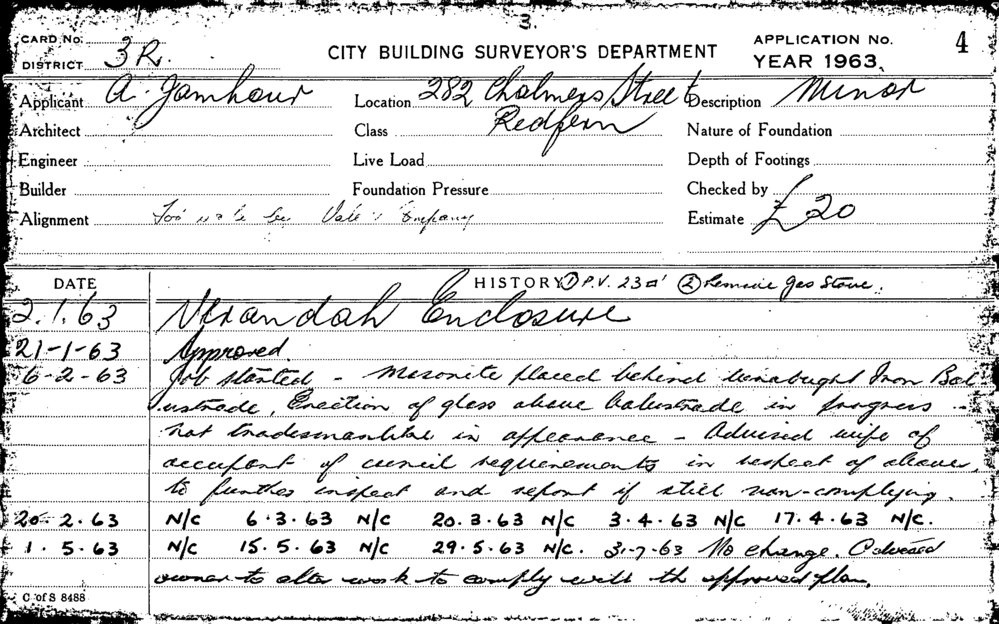 3.
CARD No.
DISTRICT 3R.
CITY BUILDING SURVEYOR'S DEPARTMENT
APPLICATION No. 4
YEAR 1963.
Applicant A. Jamhour Location 282 Chalmers Street Description Minor
Architect Class Redfern Nature of Foundation
Engineer Live Load Depth of Footings
Builder Foundation Pressure Checked by
Alignment Company Estimate £20
DATE HISTORY ① P.V. 23□' ② Remove Gas Stove.
2.1.63 Verandah Enclosure
21-1-63 Approved.
6-2-63 Job started - Masonite placed behind Iron Bal
ustrade, Erection of glass above balustrade in progress
not tradesmanlike in appearance - Advised wife of
occupant of council requirements in respect of above,
to further inspect and report if still non-complying.
20.2.63 N/C 6.3.63 N/C 20.3.63 N/C 3.4.63 N/C 17.4.63 N/C.
1.5.63 N/C 15.5.63 N/C 29.5.63 N/C. 31-7-63 No change. Advised
owner to alter work to comply with th approved plan.
C of S 8488